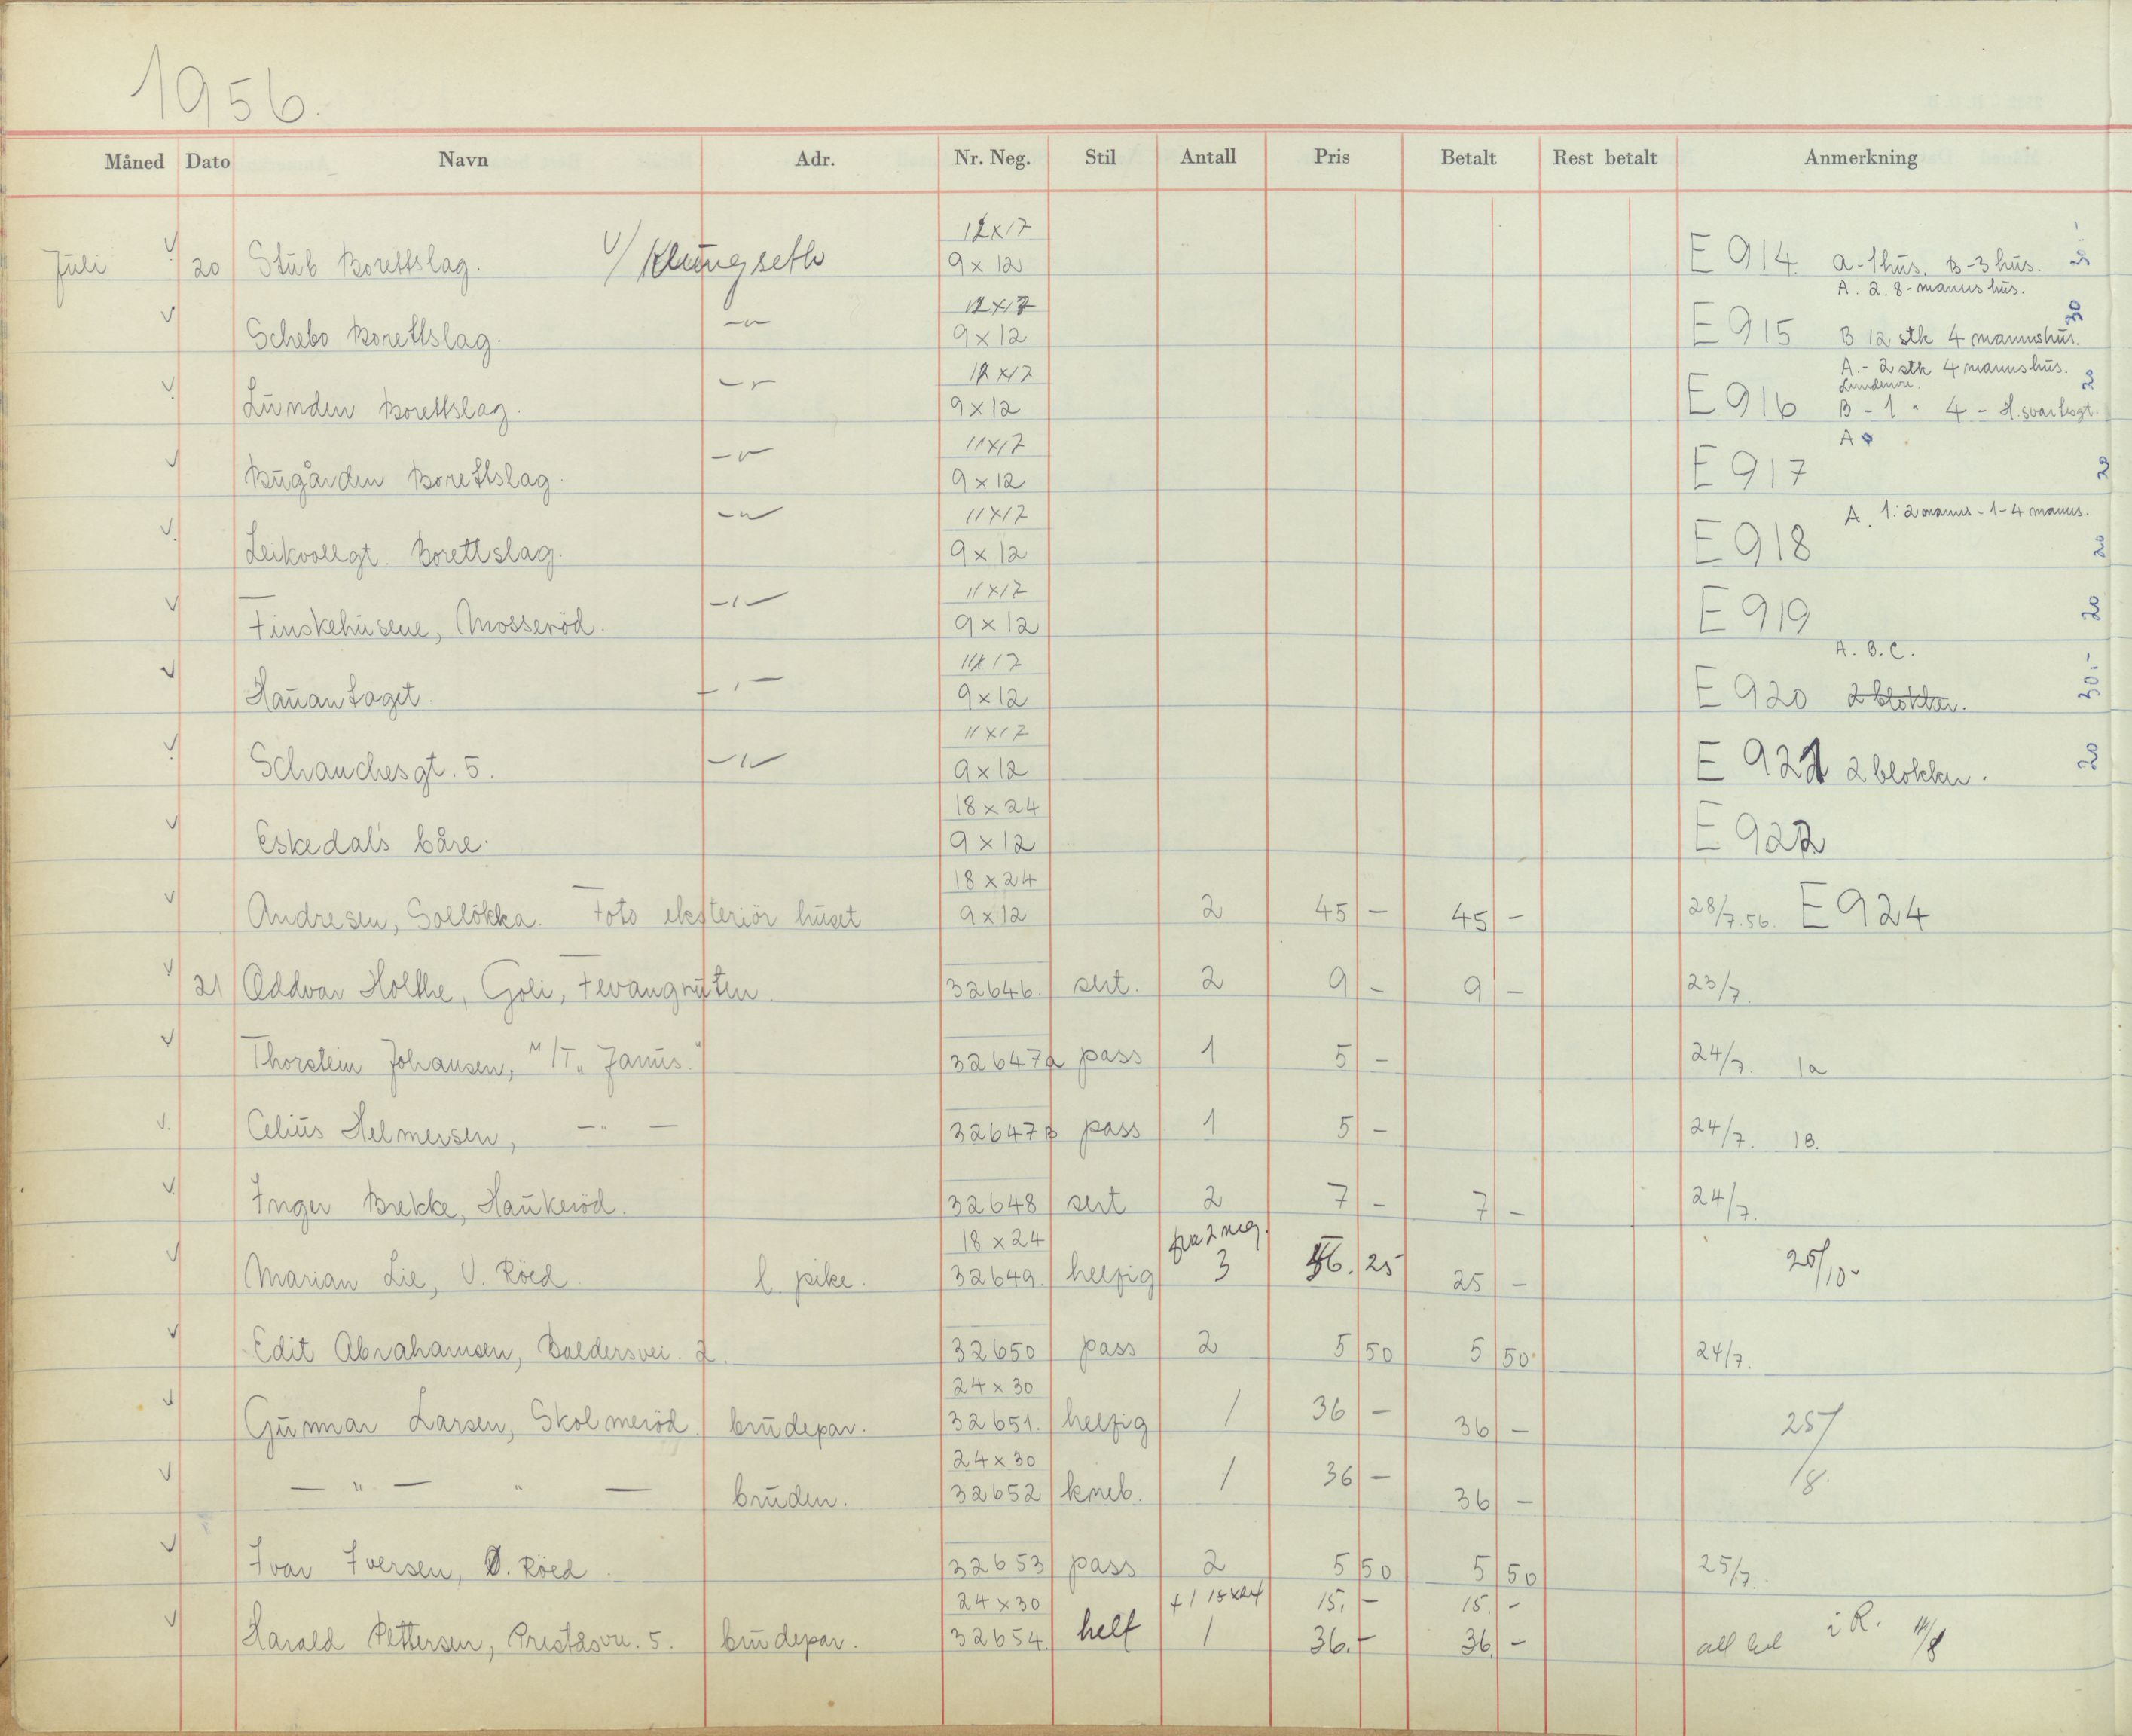 1956.
Måned Dato Navn Adr. Nr. Neg. Stil Antall Pris Betalt Rest betalt Anmerkning
12x17
Juli v 20 Stub Borettslag. v/ Klüngseth 9x12 E 914 A-1 hus. B-3 hus. 30.-
A. 2. 8-manns hus.
12x17
v Schebo Borettslag. -"- 9x12 E 915 B 12 stk 4 mannshus. 30
12x17 A.- 2 stk 4 manns hus.
Lundenvn.
v Lunden Borettslag. -"- 9x12 E 916 B - 1 " 4 - H. svartesgt. 20
11x17 A
v Bugården Borettslag. -"- 9x12 E 917 20
11x17 A. 1: 2 manns - 1-4 manns.
v Leikvollgt. Borettslag. -"- 9x12 E 918 20
11x17
v Finskehusene, Mosseröd. -"- 9x12 E 919 20
11x17 A. B. C.
v Hauan Laget. -"- 9x12 E 920 2 blokker. 30.-
11x17
v Schanchesgt. 5. -"- 9x12 E 921 2 blokker. 20
18x24
v Eskedal's båre. 9x12 E 922
18x24
v Andresen, Solløkka. Foto eksteriör huset 9x12 2 45 - 45 - 28/7.56. E 924
v 21 Oddvar Holthe, Goli, Fevangruten 32646. sert. 2 9 - 9 - 23/7.
v Thorstein Johansen, M/T "Janus." 32647a pass 1 5 - 24/7. 1a
v. Celius Helmersen, -"- 32647B pass 1 5 - 24/7. 1B.
v Inger Brekke, Haukeröd. 32648 sert 2 7 - 7 - 24/7.
18x24 fra 2 neg.
v Marian Lie, V. Röed. l. pike. 32649. helfig 3 46. 25 25 - 25/10-
v Edit Abrahamsen, Baldersvei. 2. 32650 pass 2 5 50 5 50 24/7.
24x30
v Gunnar Larsen, Skolmeröd. brudepar. 32651. helfig 1 36 - 36 - 25/8.
24x30
v -"- " - bruden. 32652 kneb. 1 36 - 36 -
v Ivar Iversen, Ø. Röed. 32653 pass 2 5 50 5 50 25/7.
24x30 +1 18x24 15. - 15. -
v Harald Pettersen, Preståsvn. 5. brudepar. 32654. helf 1 36.- 36. - i R.